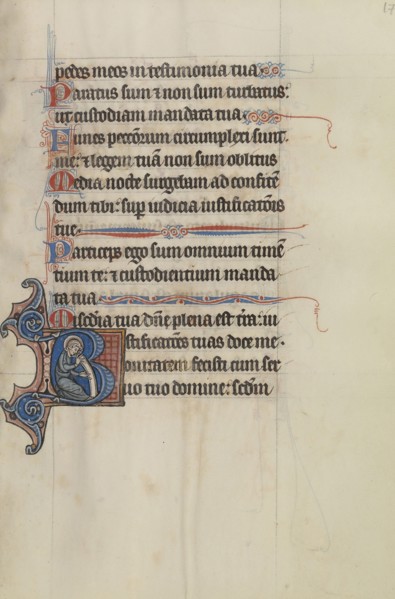 17
pedes meos in testimonia tua
Paratus sum ⁊ non sum turbatus:
ut custodiam mandata tua
Funes peccōrum circumplexi sunt
me: ⁊ legem tuā non sum oblitus
Media nocte surgebam ad confitē
dum tibi: sup iudicia iustificatōis
tue
Particeps ego sum omnium timē
tium te: ⁊ custodientium manda
ta tua
Misedia tua dn̄e plena est tr̄a: iu
stificatōes tuas doce me
Bonitatem fecisti cum ser
uo tuo domine: scdm̄